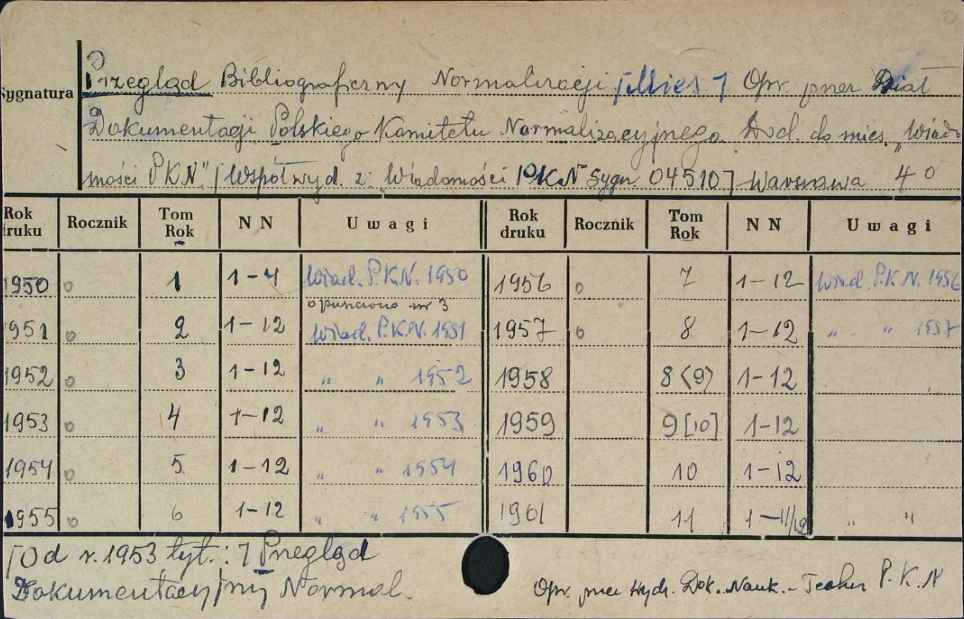 Sygnatura
Przegląd Bibliograficzny Normalizacji [Mies.] Opr. przez Dział
Dokumentacji Polskiego Komitetu Normalizacyjnego. Dod. do mies. „Wiado
mości PKN." [Współwyd. z: „Wiadomości PKN" Sygn. 045107] Warszawa 4o
Rok druku Rocznik Tom Rok NN Uwagi Rok druku Rocznik Tom Rok NN Uwagi
1950 o 1 1-4 Wiad. P.K.N. 1950 1956 o 7 1-12 Wiad. P.K.N. 1956
opuszczono nr 3
1951 o 2 1-12 Wiad. P.K.N. 1951 1957 o 8 1-12 „ „ 1957
1952 o 3 1-12 „ „ 1952 1958 8 (9) 1-12
1953 o 4 1-12 „ „ 1953 1959 9 [10] 1-12
1954 o 5 1-12 „ „ 1954 1960 10 1-12
1955 o 6 1-12 „ „ 1955 1961 11 1-11/12 „ „
[Od r. 1953 tyt.:] Przegląd
Dokumentacyjny Normal.
Opr. przez Wydz. Dok. Nauk.-Techn. P.K.N